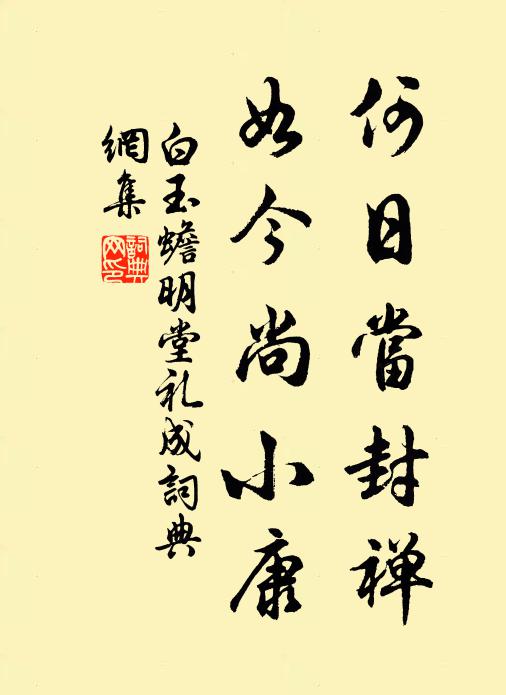 何日當封禅
如今尚小康
白玉蟾明堂礼成詞典
網集
詞典
网印